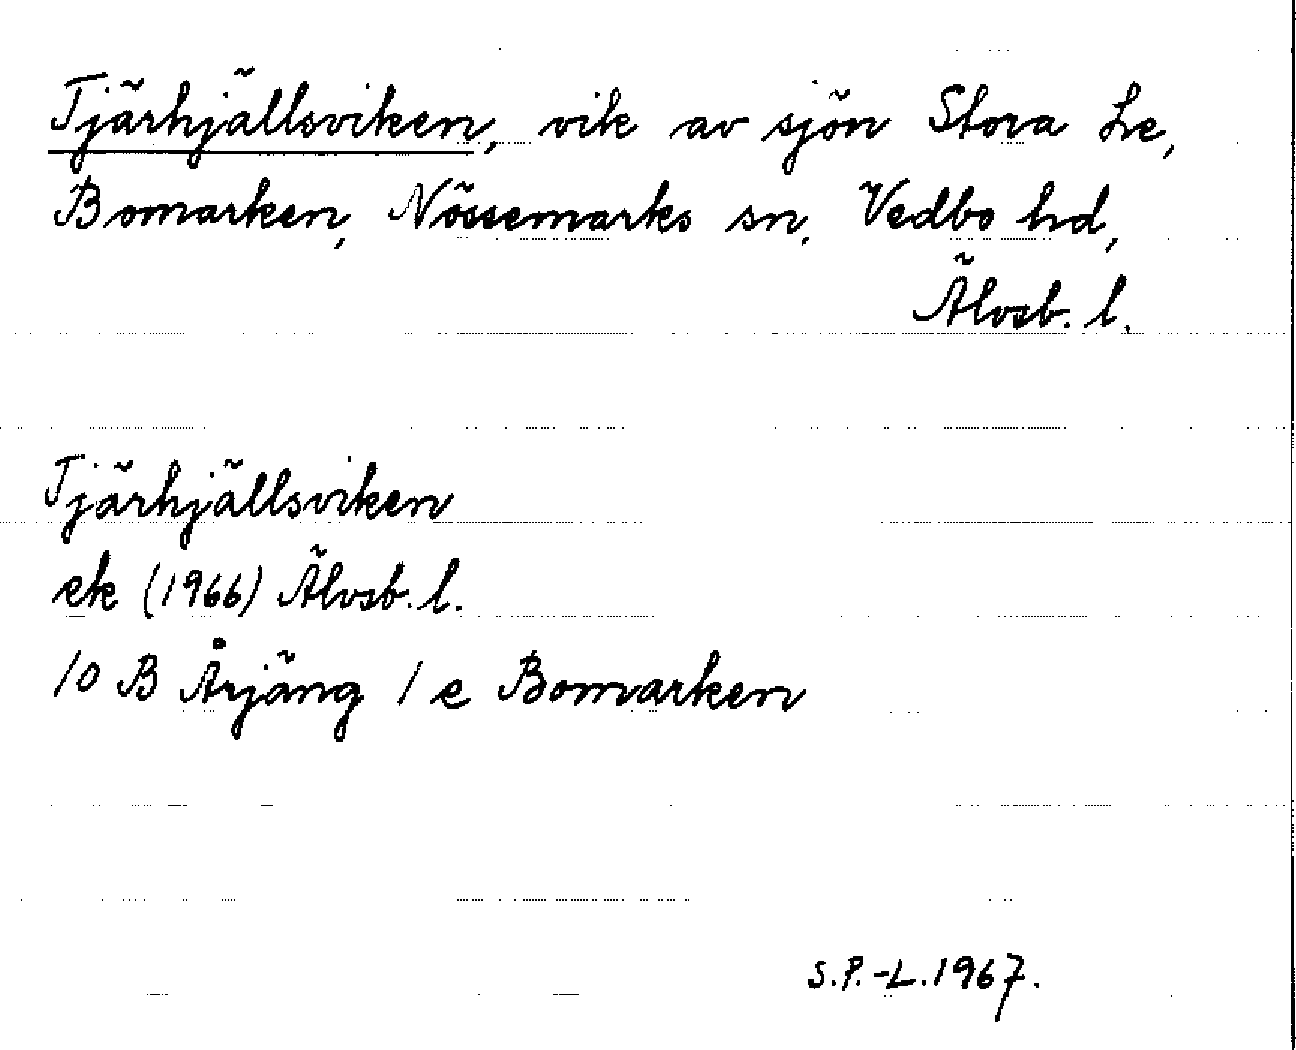 Tjärhjällsviken, vik av sjön Stora Le,
Bomarken, Nössemarks sn, Vedbo hd,
Älvsb. l.
Tjärhjällsviken
ek (1966) Älvsb. l.
10 B Årjäng 1 e Bomarken
S.P.-L. 1967.